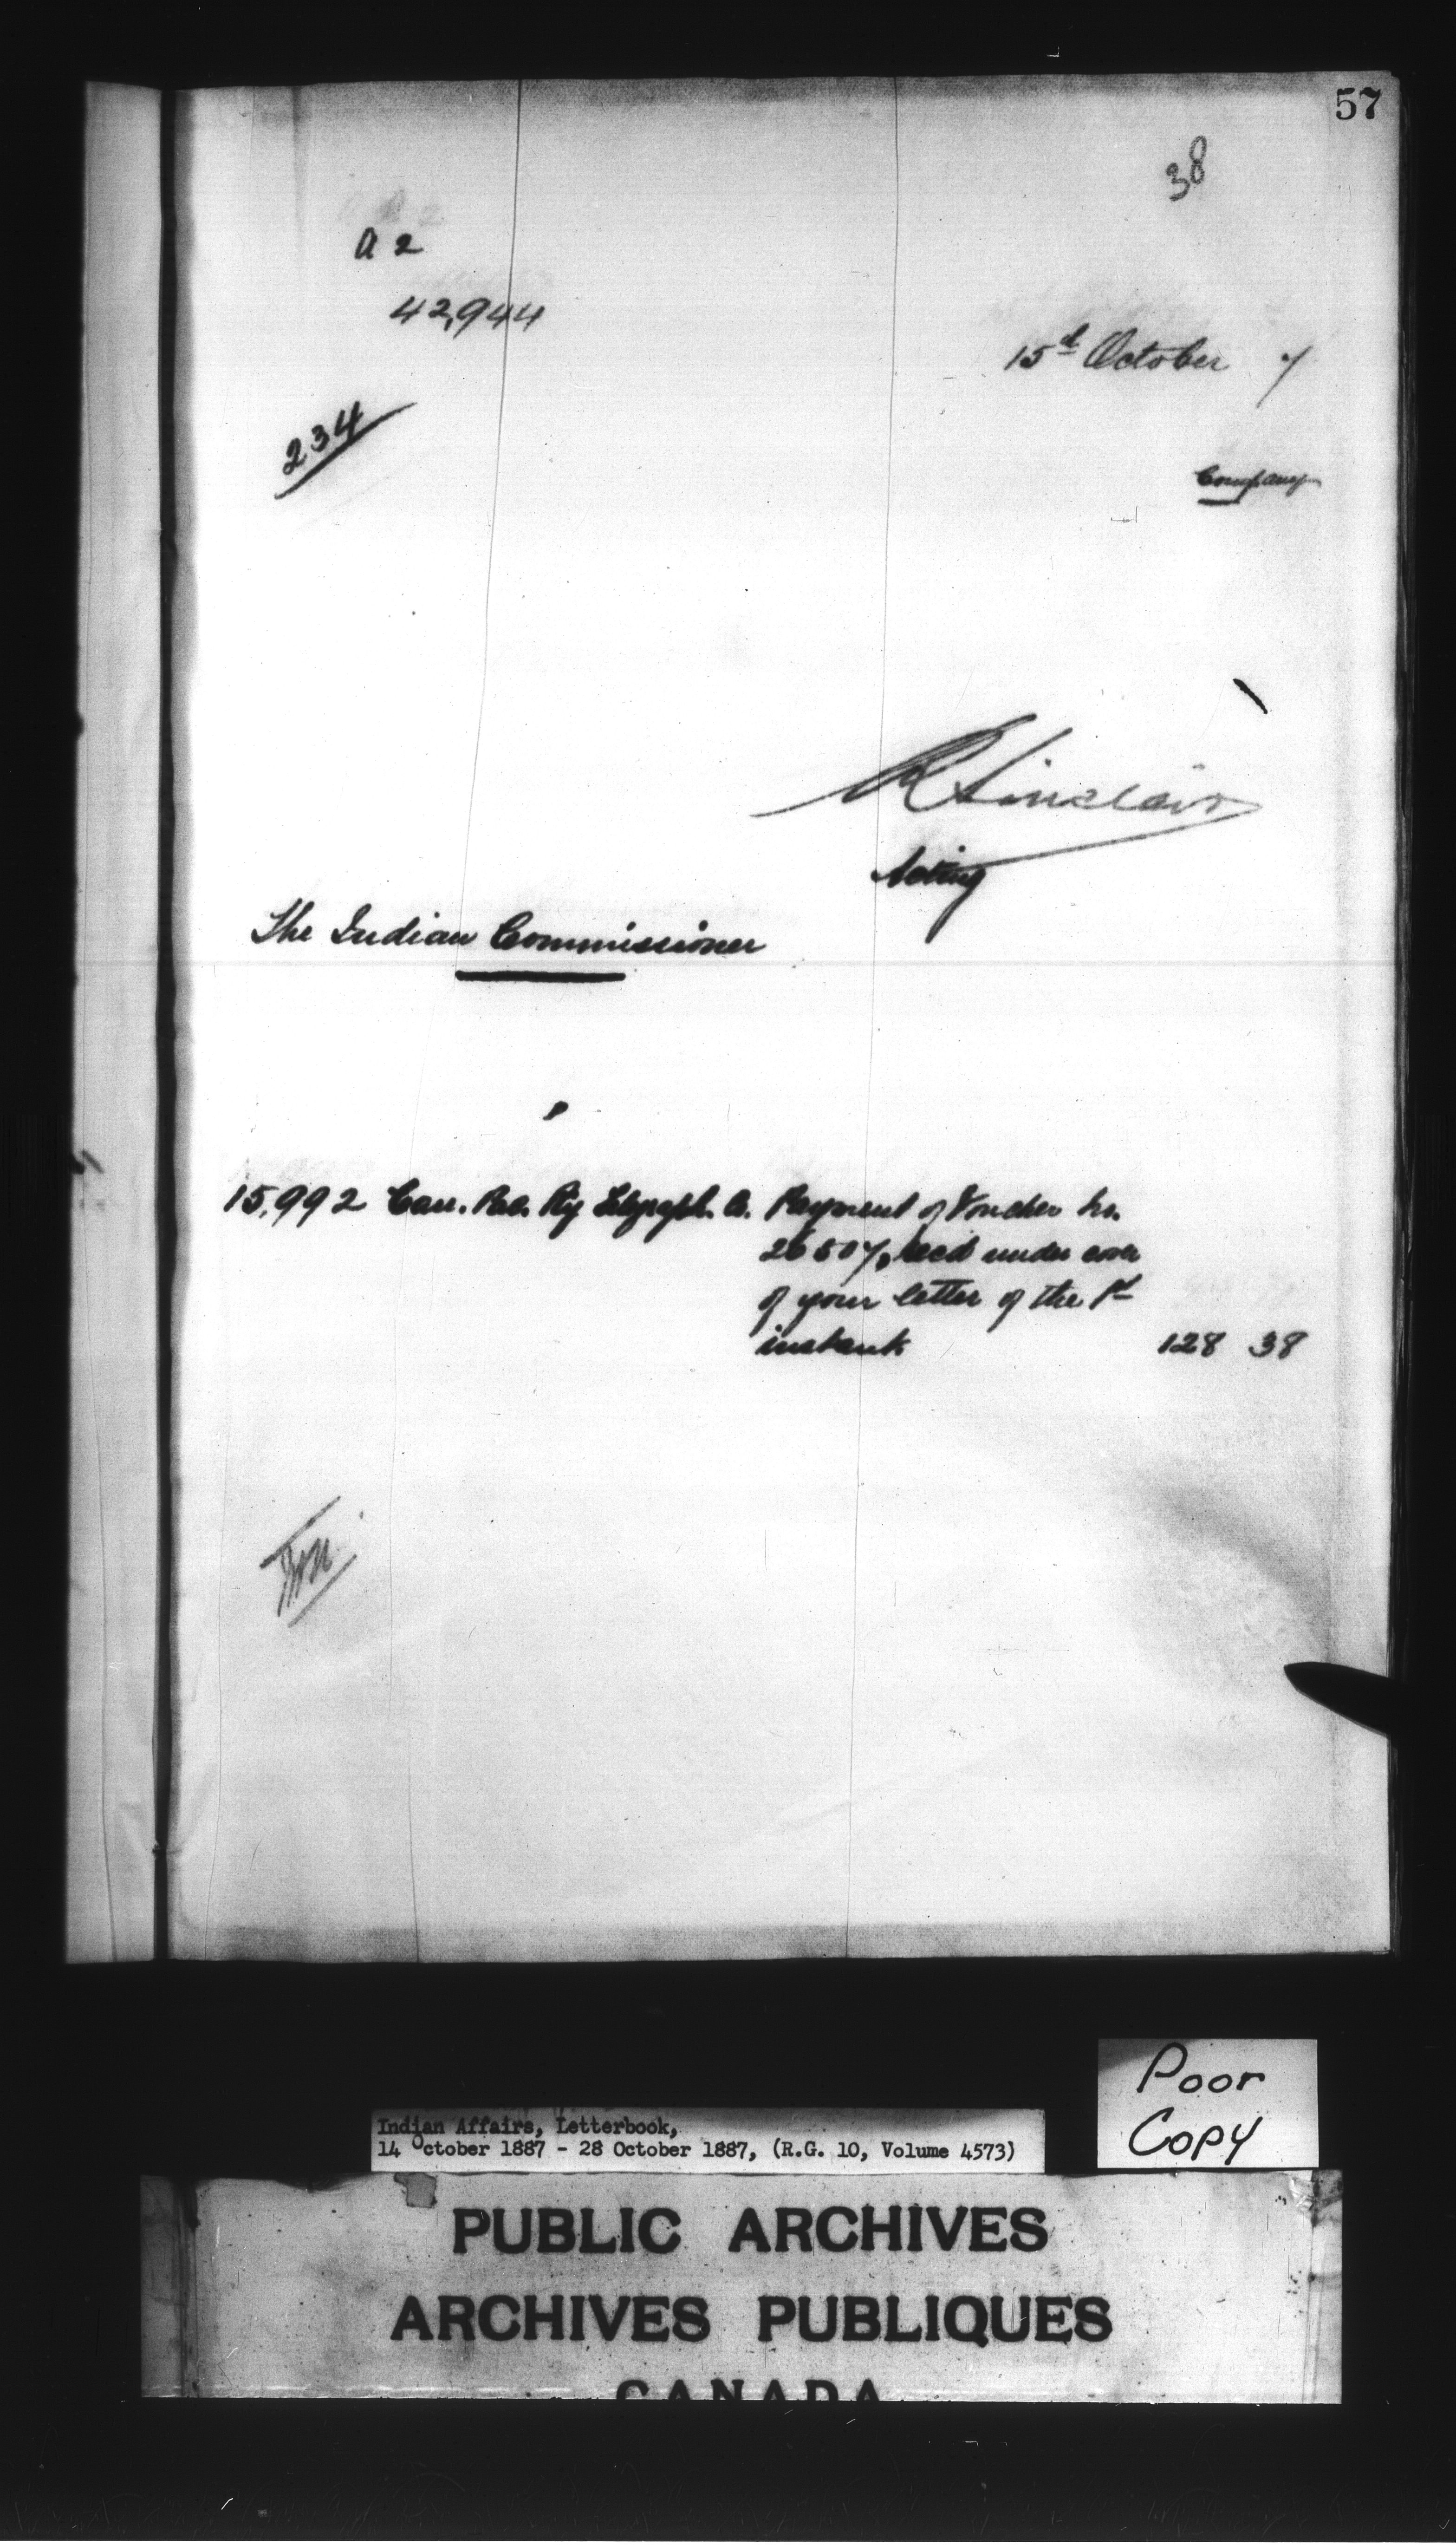 57
38
A 2
42,944
15th October 7
234
Company
R Sinclair
Acting
The Indian Commissioner
15,992 Can. Pac. Ry Telegraph. Co. Payment of Voucher No.
26507, recd under cover
of your letter of the 1st
instant 128 38
Poor
Copy
Indian Affairs, Letterbook,
14 October 1887 - 28 October 1887, (R.G. 10, Volume 4573)
PUBLIC ARCHIVES
ARCHIVES PUBLIQUES
CANADA